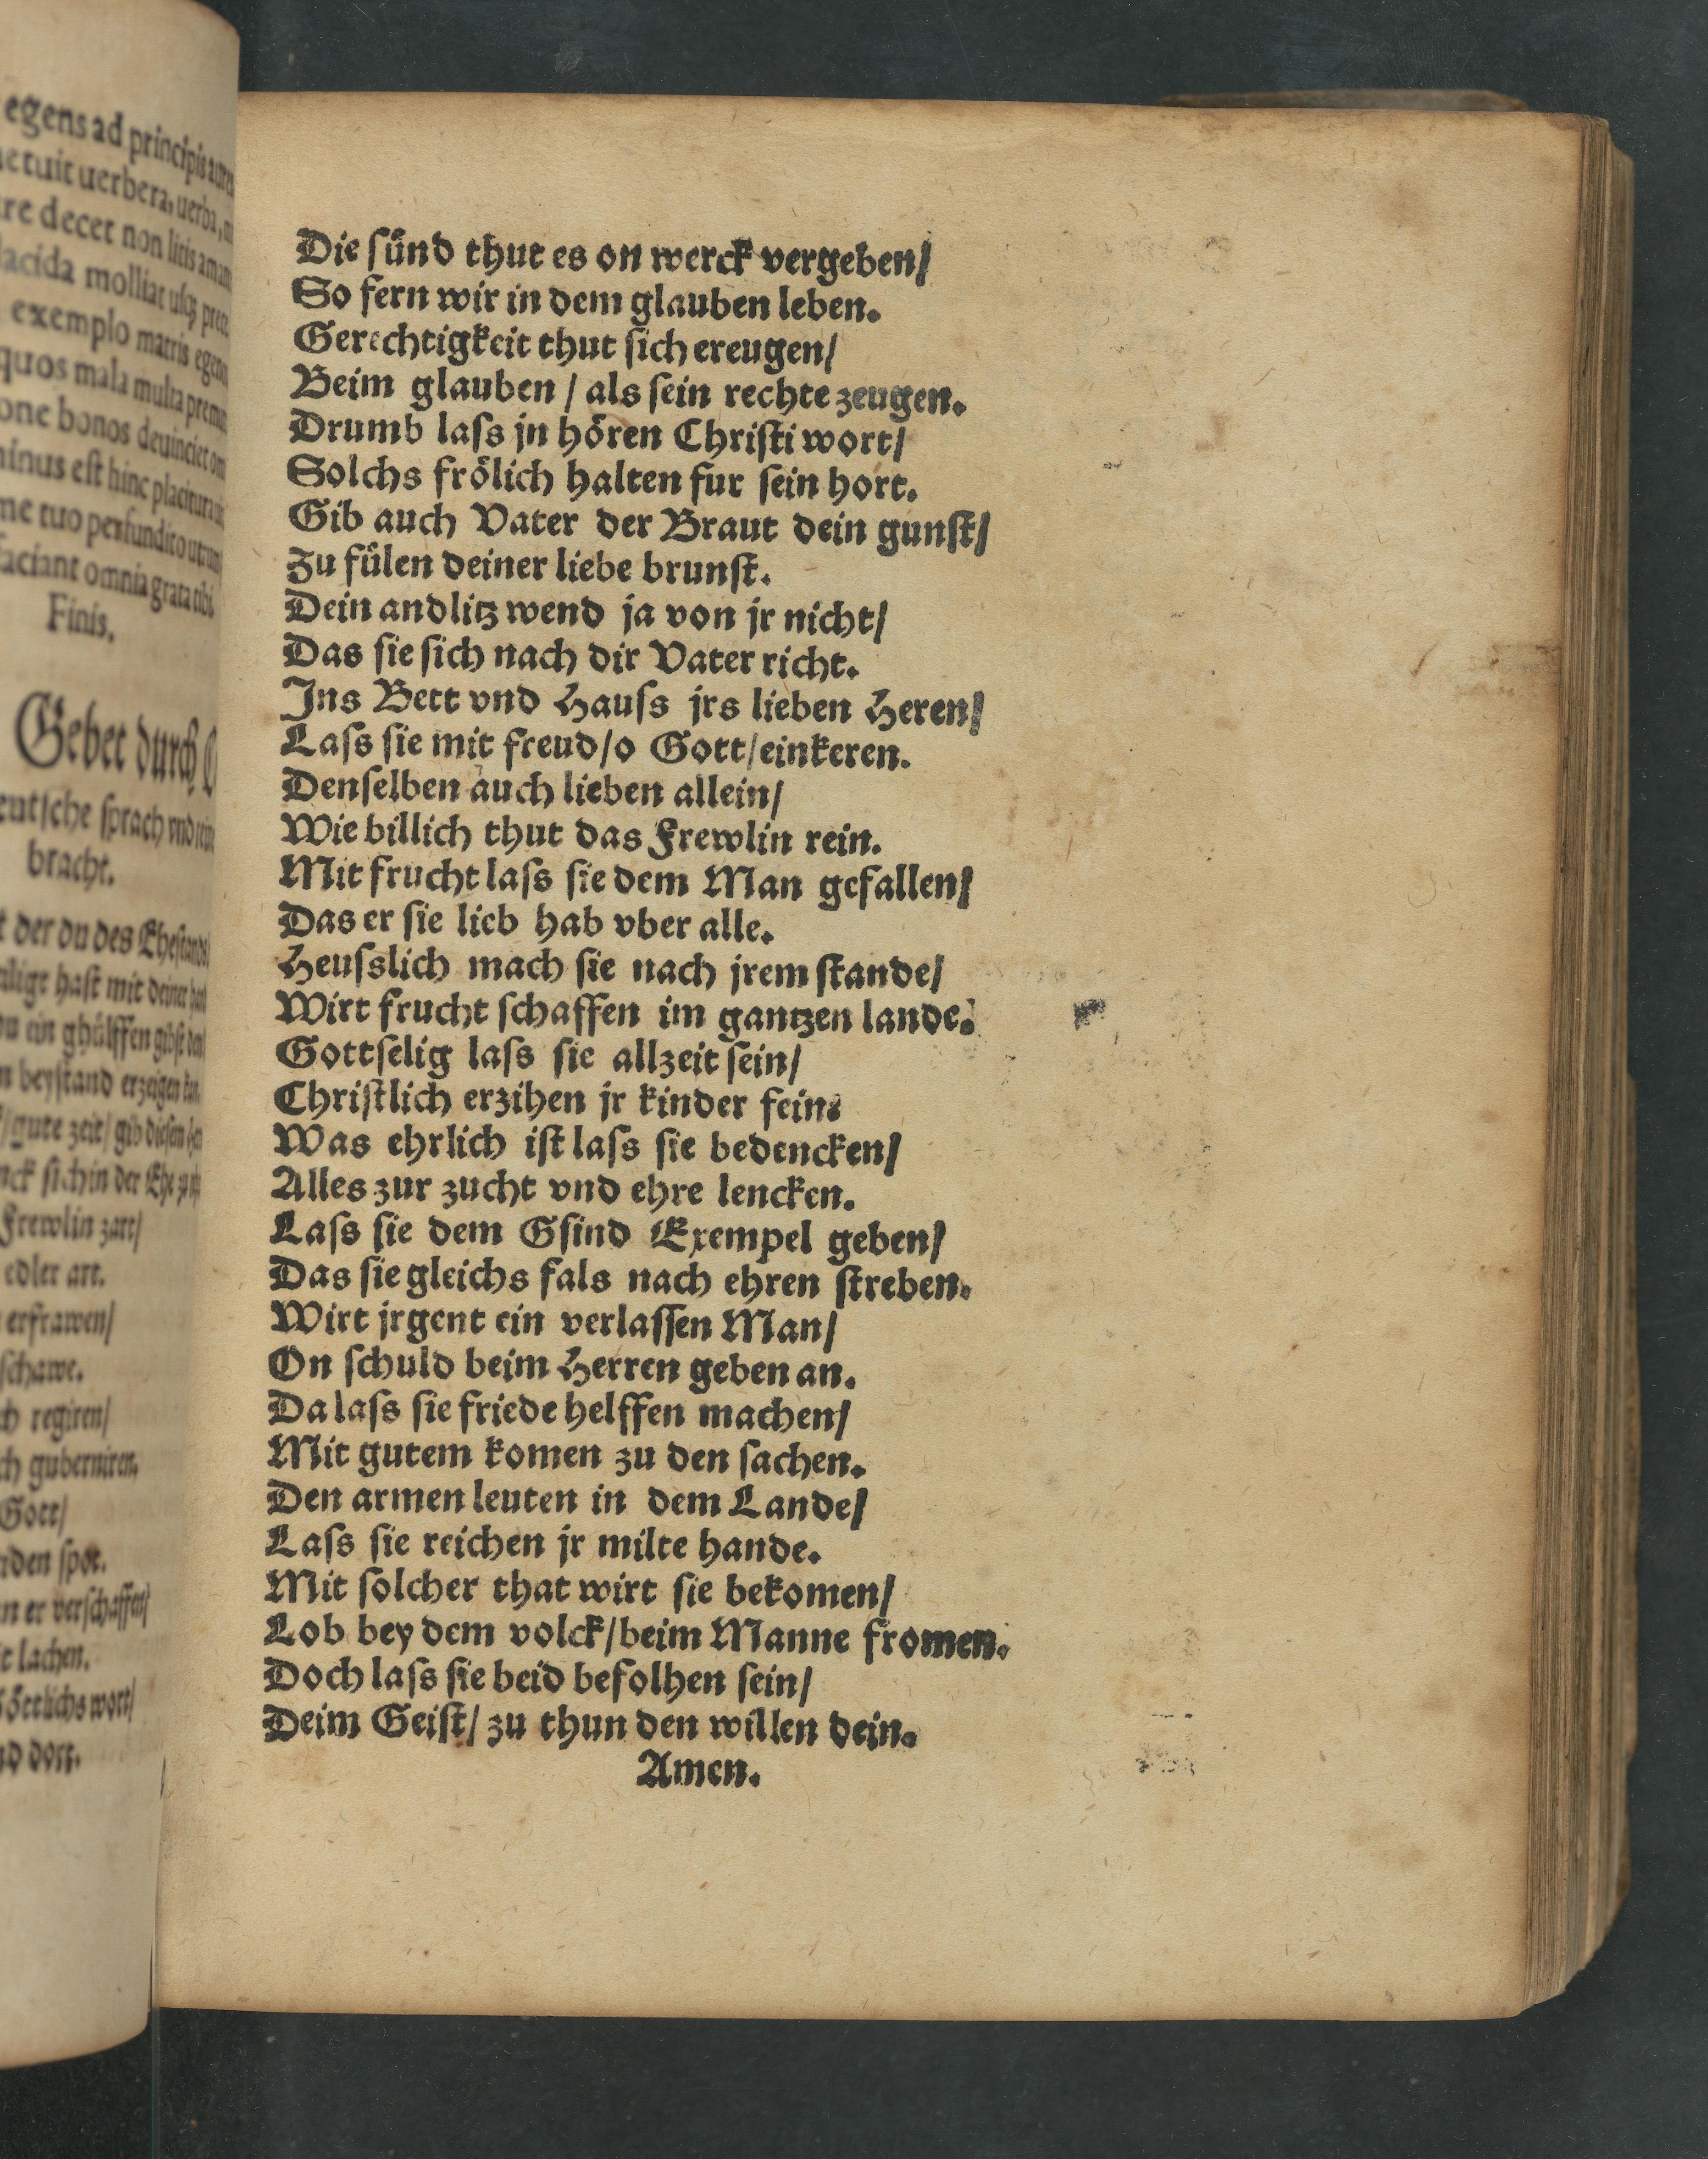 egens ad principis
tuit uerbera, uerba,
re decet non litis
lacida molliat
exemplo matris
quos mala multa
one bonos deuinciet
minus est hinc
me tuo perfundito
faciant omnia grata tibi
Finis.
Gebet durch
sprach
bracht.
der du des
hast mit deiner
ein
beystand erzeigen
gute zeit/ gib diesen
sich in der Ehe
Frewlin zart/
edler art.
erfrawen/
schawe.
regiren/
guberniren.
Gott/
spot.
er verschaffen/
lachen.
wort/
dort.
Die sünd thut es on werck vergeben/
So fern wir in dem glauben leben.
Gerechtigkeit thut sich ereugen/
Beim glauben / als sein rechte zeugen.
Drumb laſs jn hören Chriſti wort/
Solchs frölich halten fur ſein hort.
Gib auch Vater der Braut dein gunſt/
Zu fülen deiner liebe brunſt.
Dein andlitz wend ja von jr nicht/
Das ſie ſich nach dir Vater richt.
Jns Bett vnd Hauſs jrs lieben Heren/
Laſs ſie mit freud/o Gott/einkeren.
Denſelben auch lieben allein/
Wie billich thut das Frewlin rein.
Mit frucht laſs ſie dem Man gefallen/
Das er ſie lieb hab vber alle.
Heuſslich mach ſie nach jrem ſtande/
Wirt frucht ſchaffen im gantzen lande.
Gottſelig laſs ſie allzeit ſein/
Chriſtlich erzihen jr kinder fein.
Was ehrlich iſt laſs ſie bedencken/
Alles zur zucht vnd ehre lencken.
Laſs ſie dem Gſind Exempel geben/
Das ſie gleichs fals nach ehren ſtreben.
Wirt jrgent ein verlaſſen Man/
On ſchuld beim Herren geben an.
Da laſs ſie friede helffen machen/
Mit gutem komen zu den ſachen.
Den armen leuten in dem Lande/
Laſs ſie reichen jr milte hande.
Mit ſolcher that wirt ſie bekomen/
Lob bey dem volck/beim Manne fromen.
Doch laſs ſie beid befolhen ſein/
Deim Geiſt/ zu thun den willen dein.
Amen.